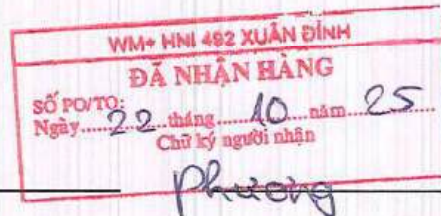 WM+ HNI 492 XUÂN ĐỈNH
ĐÃ NHẬN HÀNG
SỐ PO/TO:
Ngày 22 tháng 10 năm 25
Chữ ký người nhận
Phương